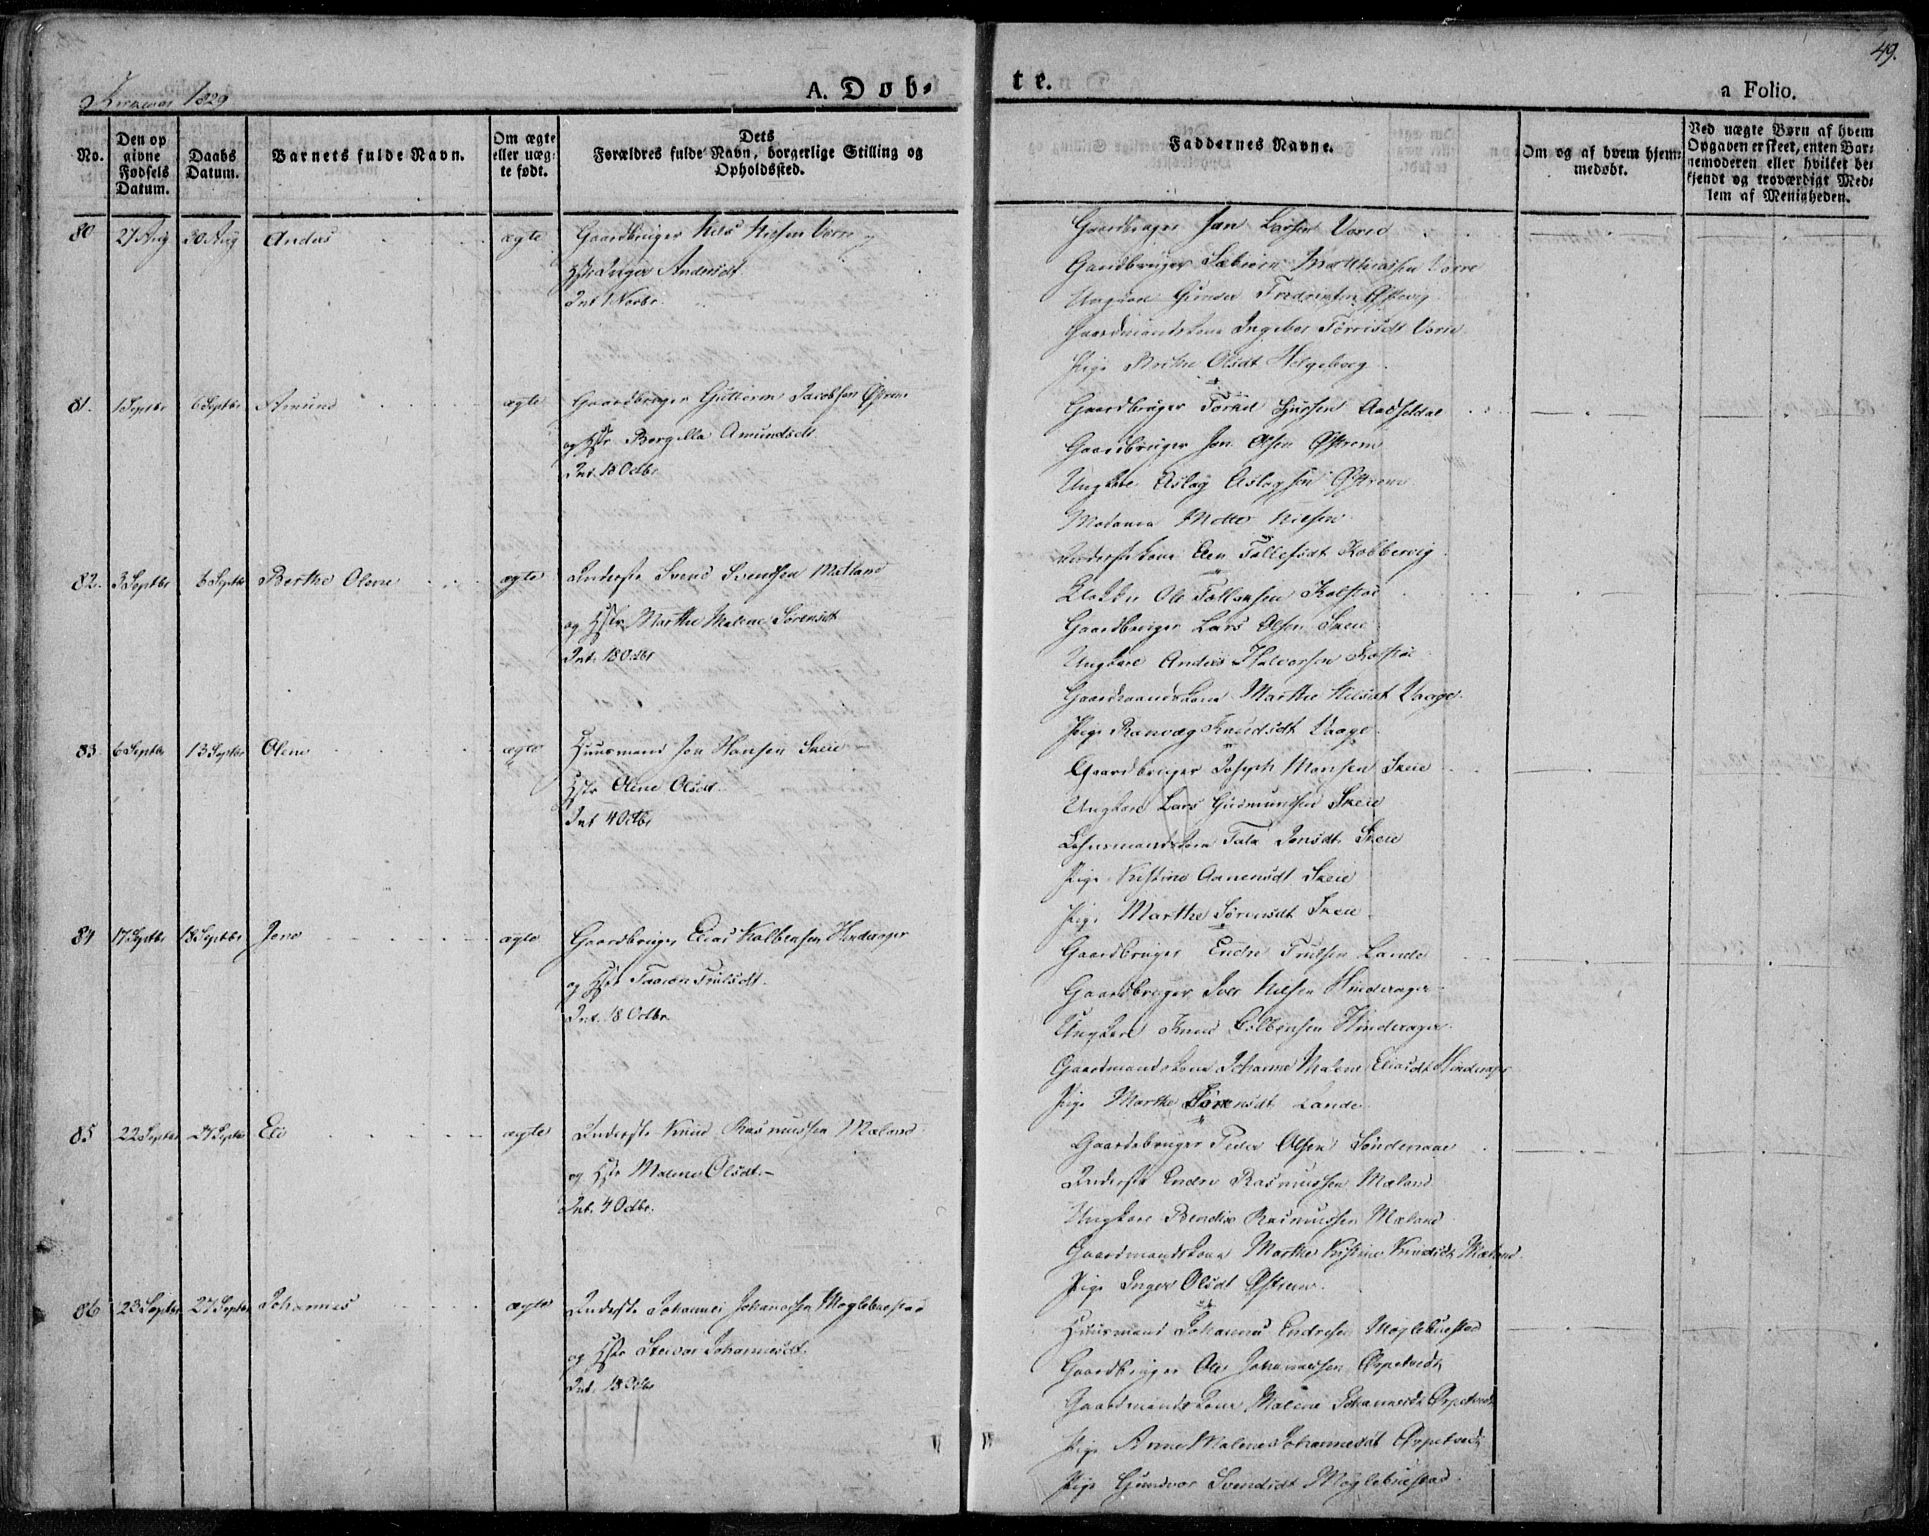 49.
Kirkeaar 1829
A. Døb-
te.
a Folio.
No.
Den op
givne
Fødsels
Datum.
Daabs
Datum.
Barnets fulde Navn.
Om ægte
eller uæg-
te født.
Dets
Forældres fulde Navn, borgerlige Stilling og
Opholdssted.
Faddernes Navne.
Om og af hvem hjem-
medøbt.
Ved uægte Børn af hvem
Opgaven er skeet, enten Bar-
nemoderen eller hvilket be-
kjendt og troværdigt Med-
lem af Menigheden.
80 27 Aug 30 Aug Andas ægte Gaardbruger Nils Nielsen Vorre
Hstr Inger Andersdt
Int 1 Novbr.
Gaardbruger Jan Larsen Vorre
Gaardbruger Matthiassen Vorre
Ungkarl Gunder
Gaardmandskone Ingebor Vorre
Pige Olsdt Helgeborg
81. 1 Septbr 6 Septbr Amund ægte Gaardbruger Guttorm Jacobsen Østrem
og Hstr Borgilla Amundsdt
Int. 18 Octbr
Gaardbruger Torkel
Gaardbruger Jon Olsen Østrem
Ungkarl Aslag Aslagsen Østrem
Madame Mette Nielsen
Kone Elen Tollefsdt Kobbervig
82. 3 Septbr 6 Septbr Berthe Olene ægte Inderste Svend Svendsen Matland
og Hstr Marthe Malene Sørensdt
Int. 18 Octbr
Klokker Ole Tollefsen Kolstøe
Gaardbruger Lars Olsen Skeie
Ungkarl Andres Halvorsen Kolstøe
Gaardmandskone Marthe Nilsdt Vaage
Pige Ranvæg Knudsdt Vaage
83. 6 Septbr 13 Septbr Olene ægte Huusmand Jon Hansen Skeie
Hstr Olene Olsdt
Int 4 Octbr
Gaardbruger Joseph Monsen Skeie
Ungkarl Lars Gudmundsen Skeie
Jonsdt Skeie
Pige Kistine Aanensdt Skeie
Pige Marthe Sørensdt Skeie
84 17 Septbr 18 Septbr Jone ægte Gaardbruger Elias Kolbensen Hinderager
og Hstr
Int. 18 Octbr.
Gaardbruger Endre Lande
Gaardbruger Iver Nielsen Hinderager
Ungkarl Knud Colbensen Hinderager
Gaardmandskone Johanne Malene Eliasdt Hinderager
Pige Marthe Sørensdt Lande
85 22 Septbr 27 Septbr Eli ægte Inderste Knud Rasmussen Mæland
og Hstr Malene Olsdt
Int. 4 Octbr.
Gaardbruger Peder Olsen Søndenaae
Inderste Endre Rasmussen Mæland
Ungkarl Bendix Rasmussen Mæland
Gaardmandskone Marthe Kistine Knudsdt Mæland
Pige Inger Olsdt Østrem
86 23 Septbr 27 Septbr Johannes ægte Inderste Johannes Johannessen Møglebuestad
og Hstr Steivor Johannesdt
Int. 18 Octbr
Huusmand Johannes Endresen Møglebuestad
Gaardbruger Ole Johannessen Ørpetvedt
Gaardmandskone Malene Johannesdt Ørpetvedt
Pige Anne Malene Johannesdt Ørpetvedt
Pige Gundvor Svendsdt Møglebuestad